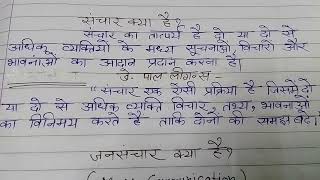 संचार क्या है?
संचार का तात्पर्य है दो या दो से
अधिक व्यक्तियों के मध्य सूचनाओं, विचारों और
भावनाओं का आदान प्रदान करना है।
पाल लीगन्स -
"संचार एक ऐसी प्रक्रिया है जिसमें दो
या दो से अधिक व्यक्ति विचार, तथ्य, भावनाओं
का विनिमय करते हैं ताकि दोनों की समझ बढ़े।
जनसंचार क्या है?